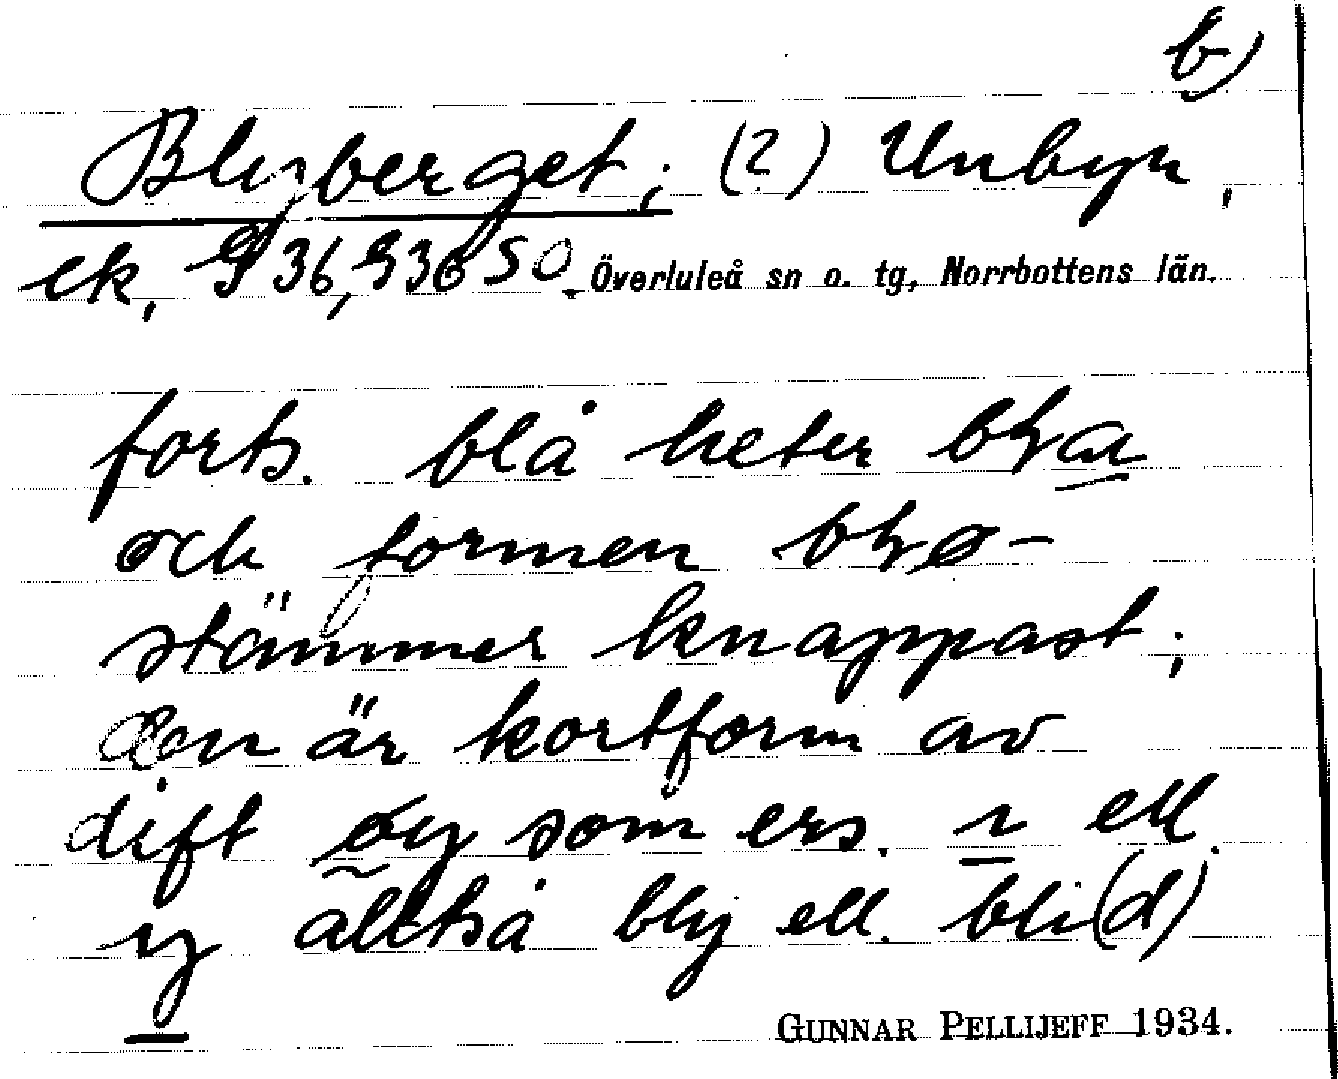 b)
Blyberget; (2) Unbyn,
ek. G 36, G36 SO. Överluleå sn o. tg, Norrbottens län.
forts. blå heter
och formen
stämmer knappast;
den är kortform av
dift øy som ers. i ell.
y alltså blij ell. bli(d)
GUNNAR PELLIJEFF 1934.